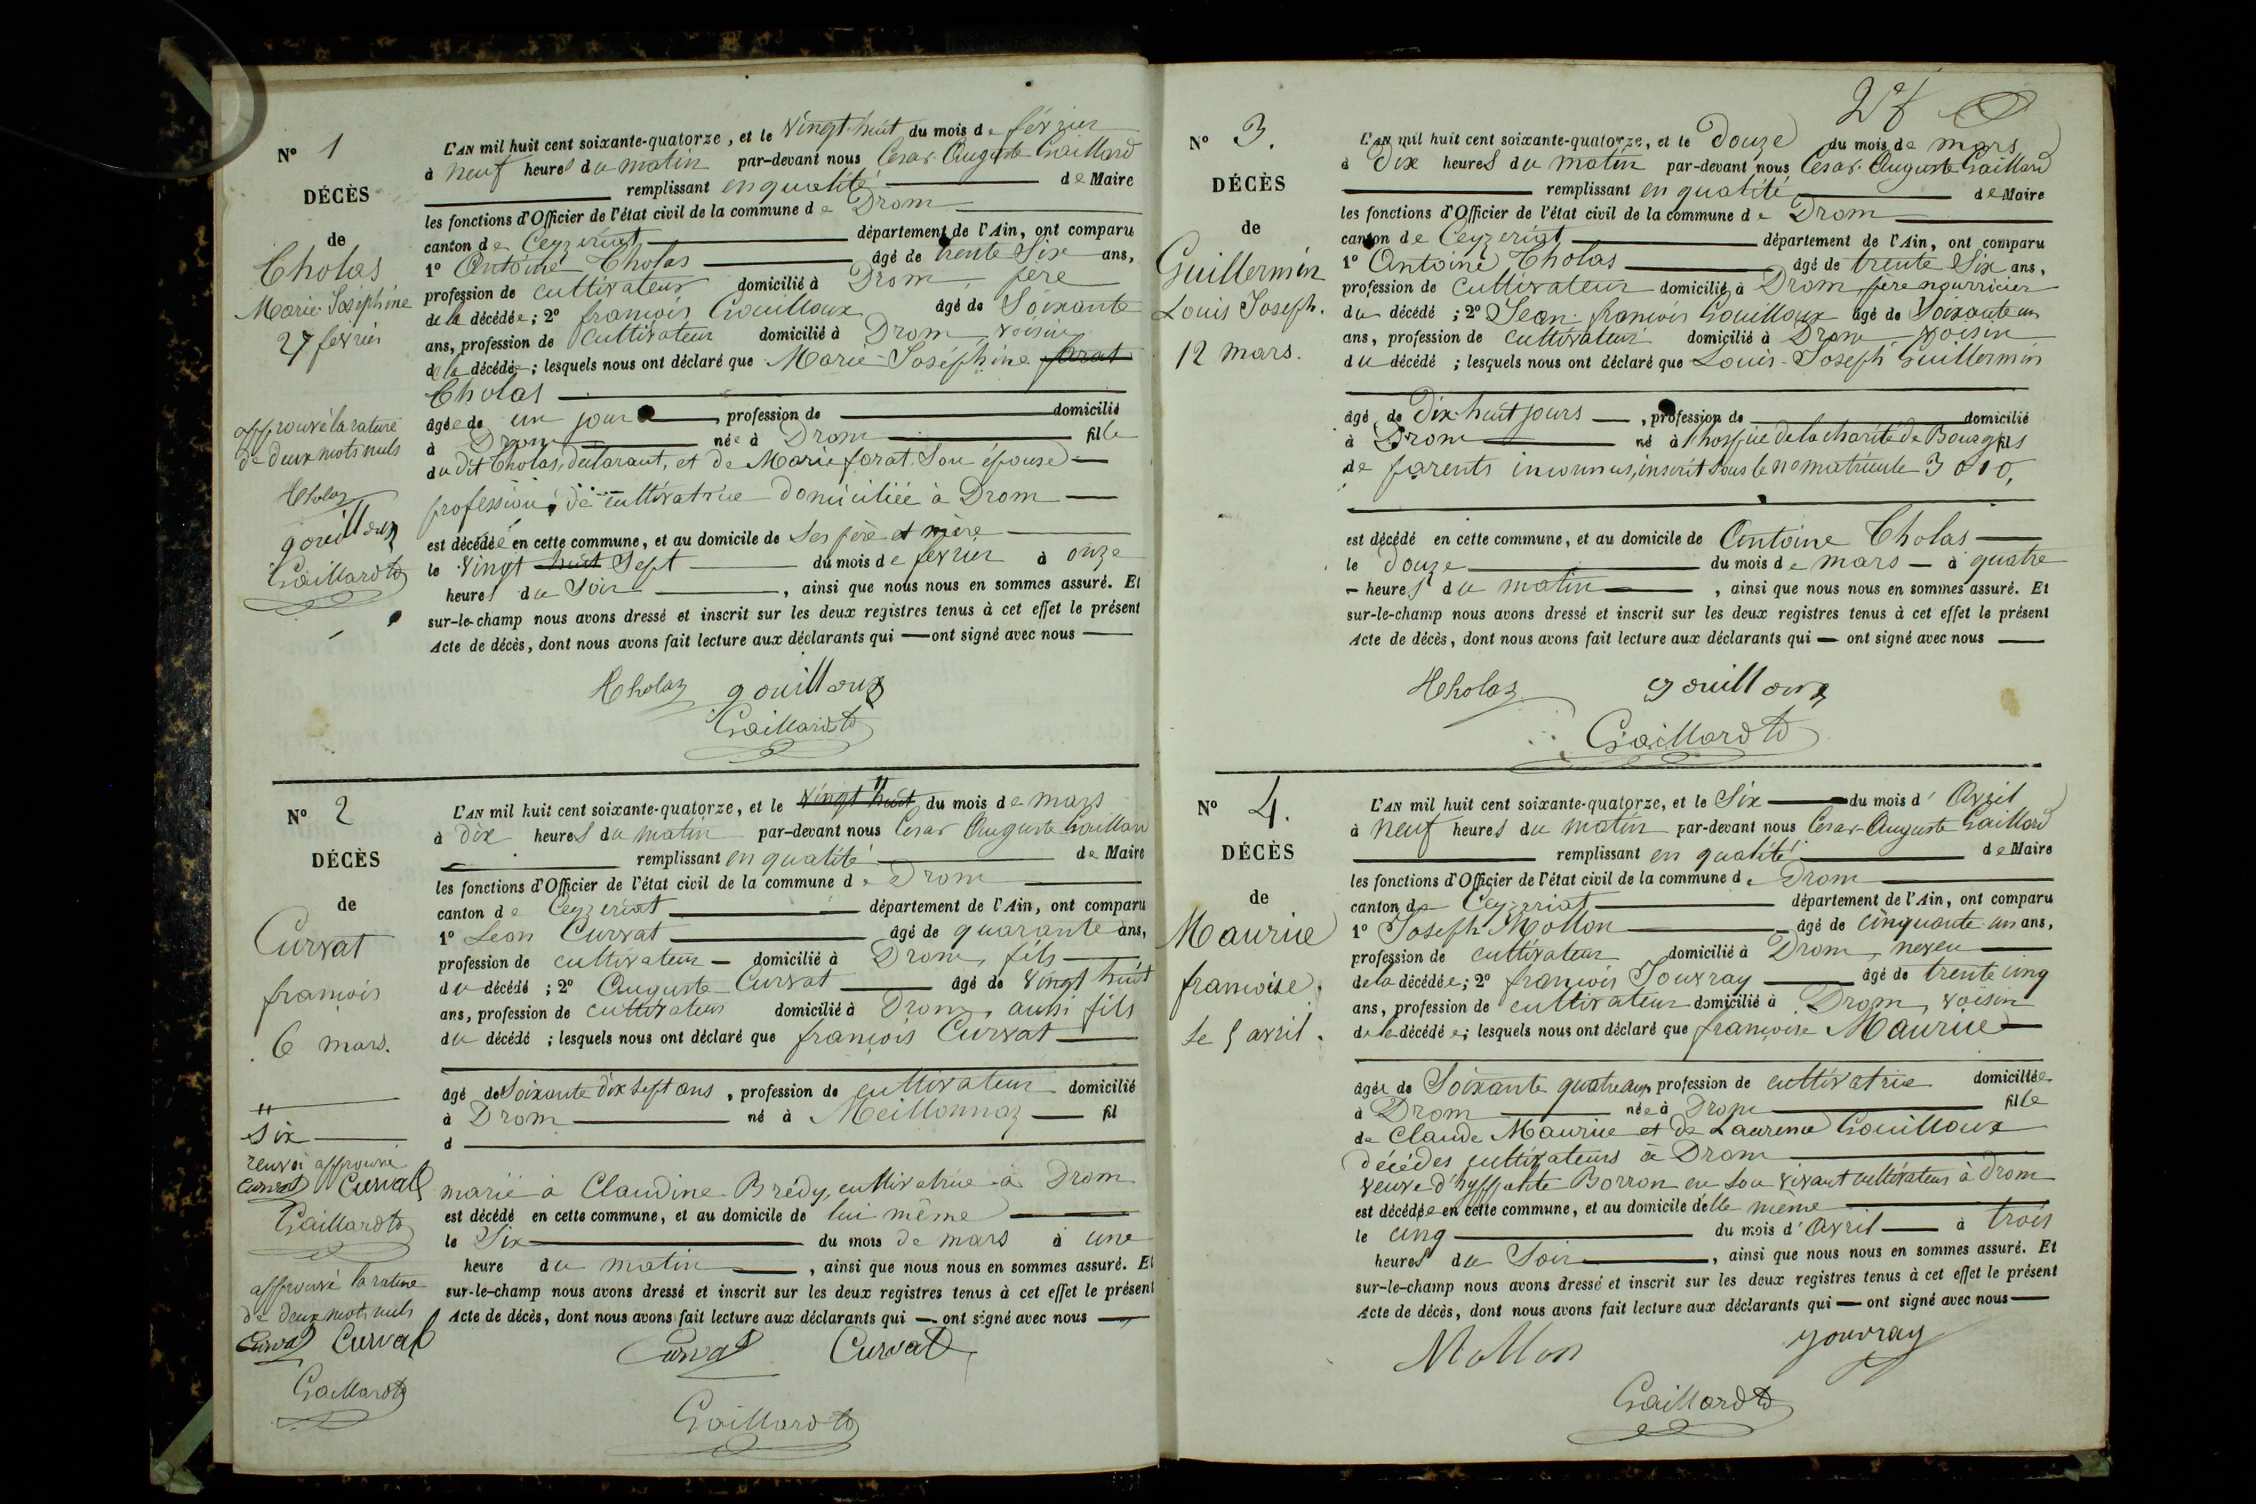 N° 1
DÉCÈS
de
Cholas
Marie Joséphine
27 février
approuvé la rature
de deux mots nuls
Cholaz
gouilloux
Gaillard
L'AN mil huit cent soixante-quatorze, et le Vingt-huit du mois de février
à neuf heures du matin par-devant nous César-Auguste Gaillard
remplissant en qualité de Maire
les fonctions d'Officier de l'état civil de la commune de Drom
canton de Ceyzériat département de l'Ain, ont comparu
1° Antoine Cholas âgé de trente Six ans,
profession de cultivateur domicilié à Drom, père
de la décédée; 2° françois Gouilloux âgé de Soixante
ans, profession de cultivateur domicilié à Drom voisin
de la décédée; lesquels nous ont déclaré que Marie-Joséphine farat
Cholas
âgée de un jour, profession de domicilié
à Drom née à Drom fille
du dit Cholas, déclarant, et de Marie farat, Son épouse
profession de cultivatrice domiciliée à Drom
est décédée en cette commune, et au domicile de Ses père et mère
le Vingt huit Sept du mois de février à onze
heures du Soir, ainsi que nous nous en sommes assuré. Et
sur-le-champ nous avons dressé et inscrit sur les deux registres tenus à cet effet le présent
Acte de décès, dont nous avons fait lecture aux déclarants qui ont signé avec nous
Cholaz gouilloux
Gaillard
N° 2
DÉCÈS
de
Curvat
françois
6 mars.
"
Six
renvoi approuvé
Curvat Curvat
Gaillard
approuvé la rature
de deux mots nuls
Curvat Curvat
Gaillard
L'AN mil huit cent soixante-quatorze, et le Vingt huit " du mois de mars
à dix heures du matin par-devant nous César Auguste Gaillard
remplissant en qualité de Maire
les fonctions d'Officier de l'état civil de la commune de Drom
canton de Ceyzériat département de l'Ain, ont comparu
1° Léon Curvat âgé de quarante ans,
profession de cultivateur domicilié à Drom, fils
du décédé; 2° Auguste Curvat âgé de Vingt huit
ans, profession de cultivateur domicilié à Drom, aussi fils
du décédé; lesquels nous ont déclaré que françois Curvat
âgé de Soixante dix sept ans, profession de cultivateur domicilié
à Drom né à Meillonnaz fil
d
marié à Claudine Brédy, cultivatrice à Drom
est décédé en cette commune, et au domicile de lui même
le Six du mois de mars à une
heure du matin, ainsi que nous nous en sommes assuré. Et
sur-le-champ nous avons dressé et inscrit sur les deux registres tenus à cet effet le présent
Acte de décès, dont nous avons fait lecture aux déclarants qui ont signé avec nous
Curvat Curvat
Gaillard
N° 3.
DÉCÈS
de
Guillermin
Louis Joseph.
12 mars.
L'AN mil huit cent soixante-quatorze, et le Douze du mois de mars
à Dix heures du matin par-devant nous César-Auguste Gaillard
remplissant en qualité de Maire
les fonctions d'Officier de l'état civil de la commune de Drom
canton de Ceyzériat département de l'Ain, ont comparu
1° Antoine Cholas âgé de trente Six ans,
profession de cultivateur domicilié à Drom, père nourricier
du décédé; 2° Jean-françois Gouilloux âgé de Soixante un
ans, profession de cultivateur domicilié à Drom voisin
du décédé; lesquels nous ont déclaré que Louis-Joseph Guillermin
âgé de Dix-huit jours, profession de domicilié
à Drom né à l'hospice de la charité de Bourg fils
de parents inconnus, inscrit sous le no matricule 3010,
est décédé en cette commune, et au domicile de Antoine Cholas
le Douze du mois de mars à quatre
heures du matin, ainsi que nous nous en sommes assuré. Et
sur-le-champ nous avons dressé et inscrit sur les deux registres tenus à cet effet le présent
Acte de décès, dont nous avons fait lecture aux déclarants qui ont signé avec nous
Cholaz gouilloux
Gaillard
N° 4.
DÉCÈS
de
Maurice
françoise.
le 5 avril.
L'AN mil huit cent soixante-quatorze, et le Six du mois d'Avril
à neuf heures du matin par-devant nous César-Auguste Gaillard
remplissant en qualité de Maire
les fonctions d'Officier de l'état civil de la commune de Drom
canton de Ceyzériat département de l'Ain, ont comparu
1° Joseph Mollon âgé de cinquante un ans,
profession de cultivateur domicilié à Drom, neveu
de la décédée; 2° françois Jouvray âgé de trente cinq
ans, profession de cultivateur domicilié à Drom, voisin
de la décédée; lesquels nous ont déclaré que françoise Maurice
âgée de Soixante quatre ans, profession de cultivatrice domiciliée
à Drom née à Drom fille
de Claude Maurice et de Laurence Gouilloux
décédés cultivateurs à Drom
veuve d'hyppolite Borron en son vivant cultivateur à Drom
est décédée en cette commune, et au domicile d'elle même
le cinq du mois d'avril à trois
heures du Soir, ainsi que nous nous en sommes assuré. Et
sur-le-champ nous avons dressé et inscrit sur les deux registres tenus à cet effet le présent
Acte de décès, dont nous avons fait lecture aux déclarants qui ont signé avec nous
Mollon Jouvray
Gaillard